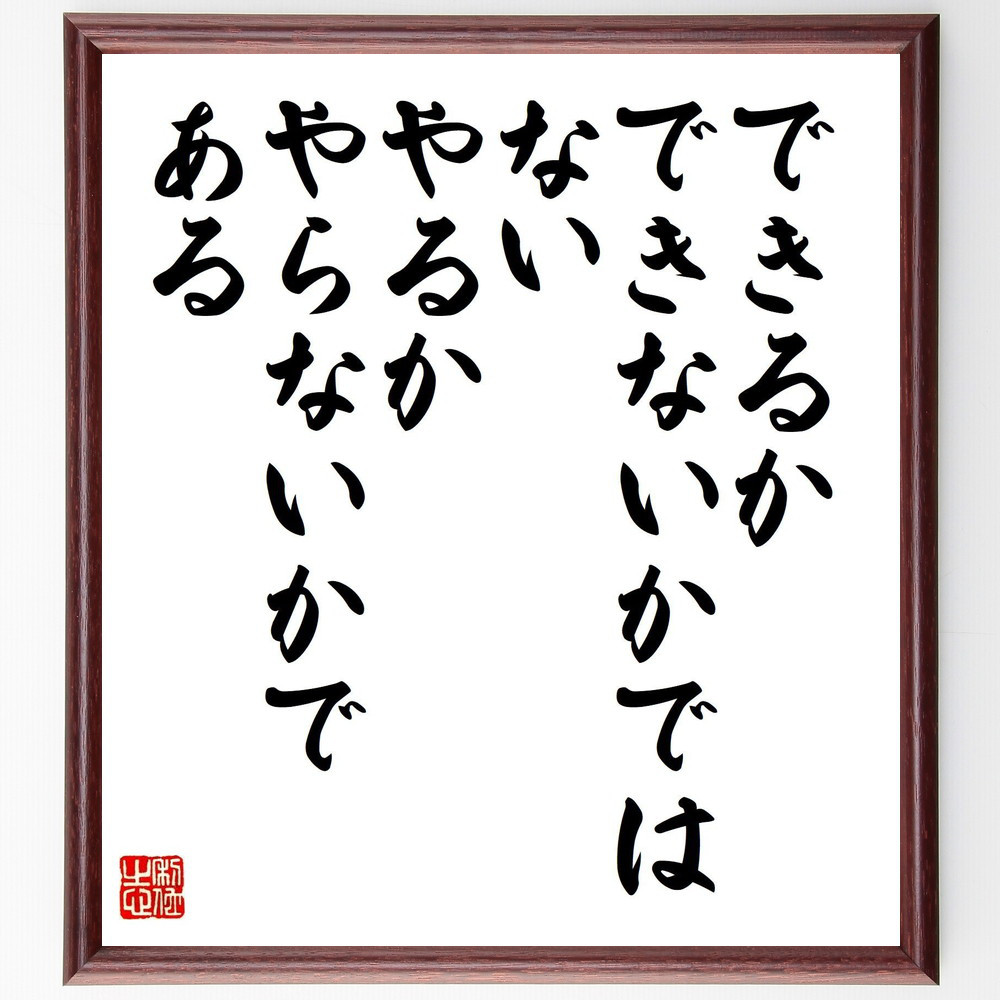 できるか
できないかでは
ない
やるか
やらないかで
ある